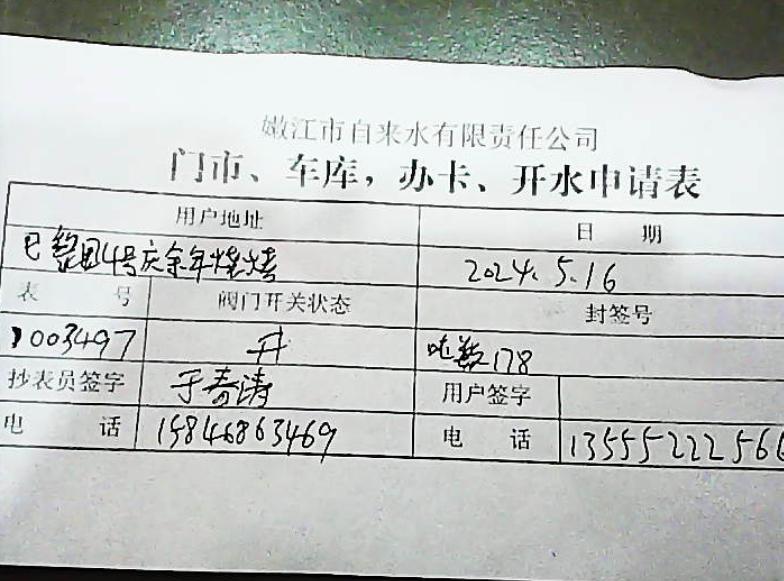 嫩江市自来水有限责任公司
门市、车库，办卡、开水申请表
用户地址 日 期
4号庆余年烧烤 2024.5.16
表 号 阀门开关状态 封签号
1003497 开 吨数178
抄表员签字 于春涛 用户签字
电 话 15846863469 电 话 1355522256